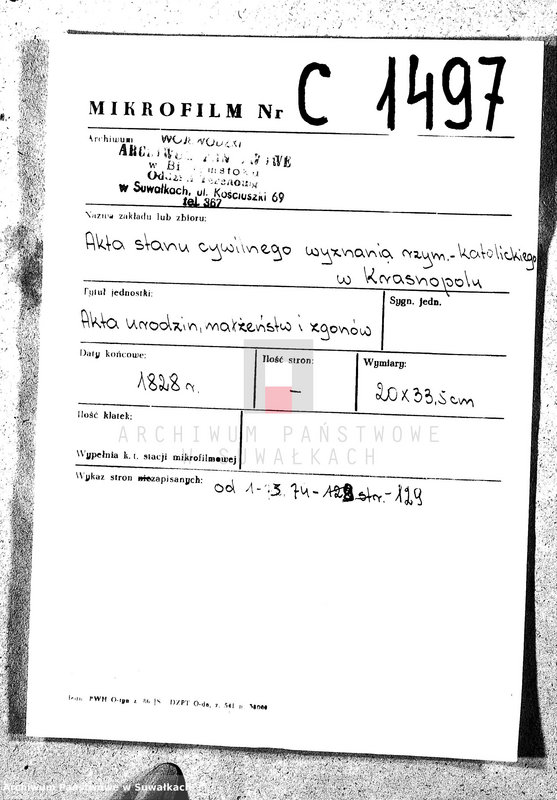 MIKROFILM Nr C 1497
Archiwum WOJEWÓDZKIE
ARCHIWUM PAŃSTWOWE
w Białymstoku
Oddział Terenowy
w Suwałkach, ul. Kościuszki 69
tel. 367
Nazwa zakładu lub zbioru:
Akta stanu cywilnego wyznania rzym.-katolickiego
w Krasnopolu
Tytuł jednostki:
Sygn. jedn.
Akta urodzin, małżeństw i zgonów
Daty końcowe:
Ilość stron:
Wymiary:
1828 r.
—
20x33,5cm
Ilość klatek:
ARCHIWUM PAŃSTWOWE
W SUWAŁKACH
Wypełnia k. t. stacji mikrofilmowej
Wykaz stron niezapisanych:
od 1- 3. 74- str.-129
Archiwum Państwowe w Suwałkach